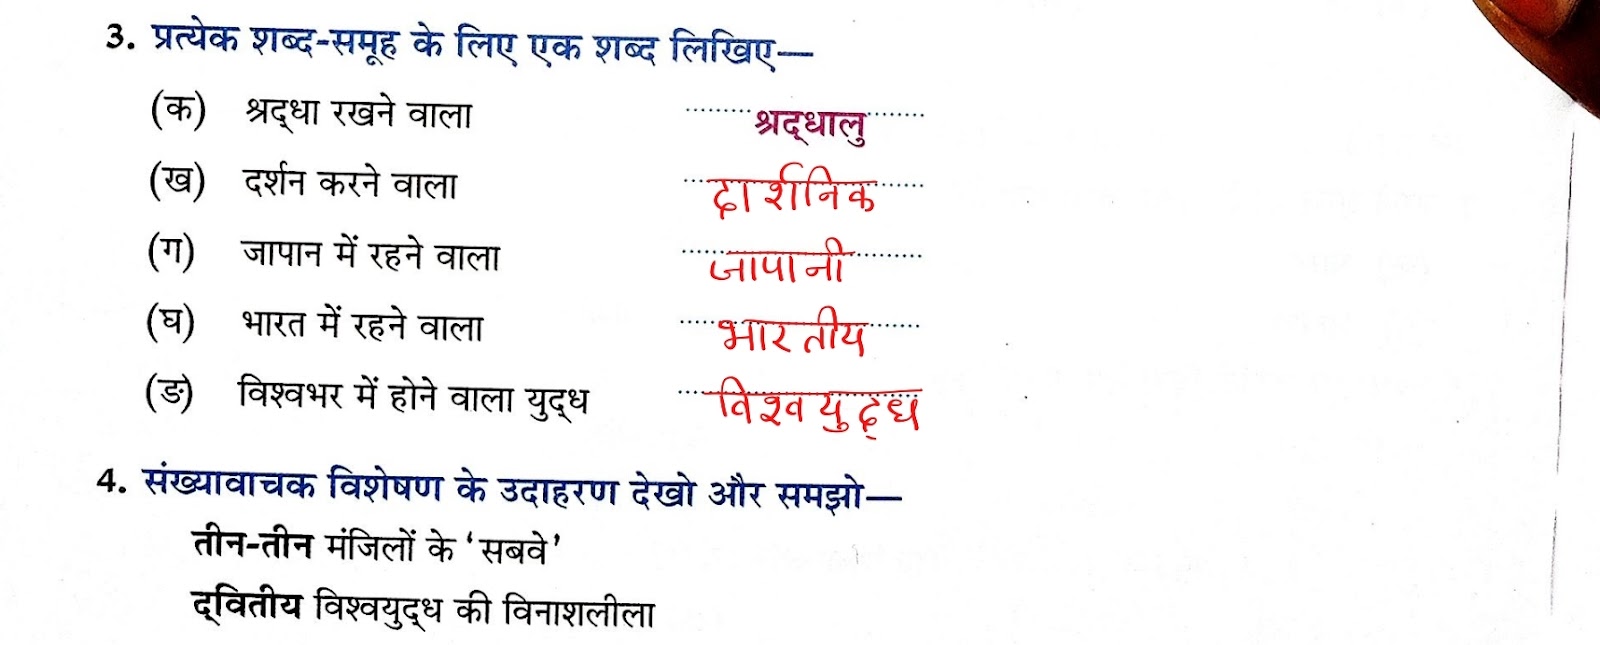 3. प्रत्येक शब्द-समूह के लिए एक शब्द लिखिए—
(क) श्रद्‌धा रखने वाला ........ श्रद्‌धालु ........
(ख) दर्शन करने वाला ... दार्शनिक ......
(ग) जापान में रहने वाला ...... जापानी ........
(घ) भारत में रहने वाला ..... भारतीय ......
(ङ) विश्वभर में होने वाला युद्‌ध .... विश्वयुद्‌ध
4. संख्यावाचक विशेषण के उदाहरण देखो और समझो—
तीन-तीन मंजिलों के ‘सबवे’
द्‌वितीय विश्वयुद्‌ध की विनाशलीला